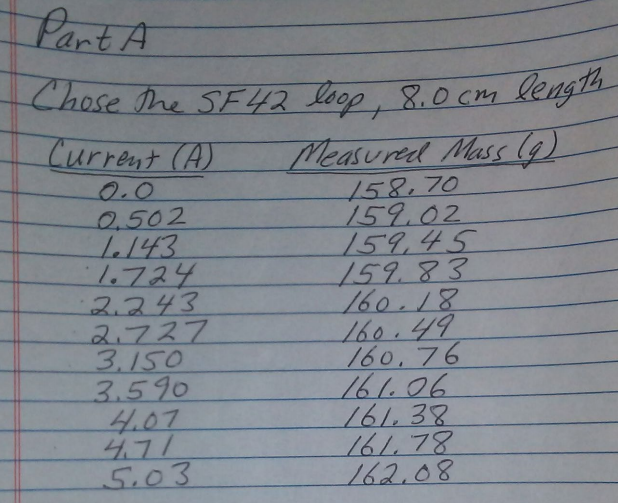 Part A
Chose the SF42 loop, 8.0 cm length
Current (A) Measured Mass (g)
0.0 158.70
0.502 159.02
1.143 159.45
1.724 159.83
2.243 160.18
2.727 160.49
3.150 160.76
3.590 161.06
4.07 161.38
4.71 161.78
5.03 162.08